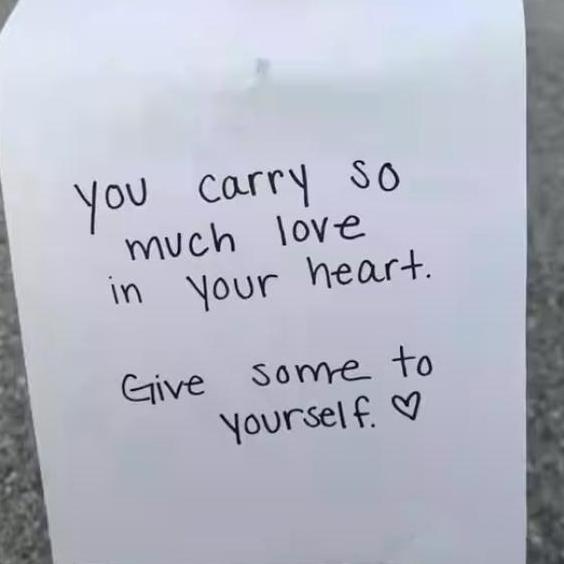 you carry so
much love
in your heart.
Give some to
yourself. ♡